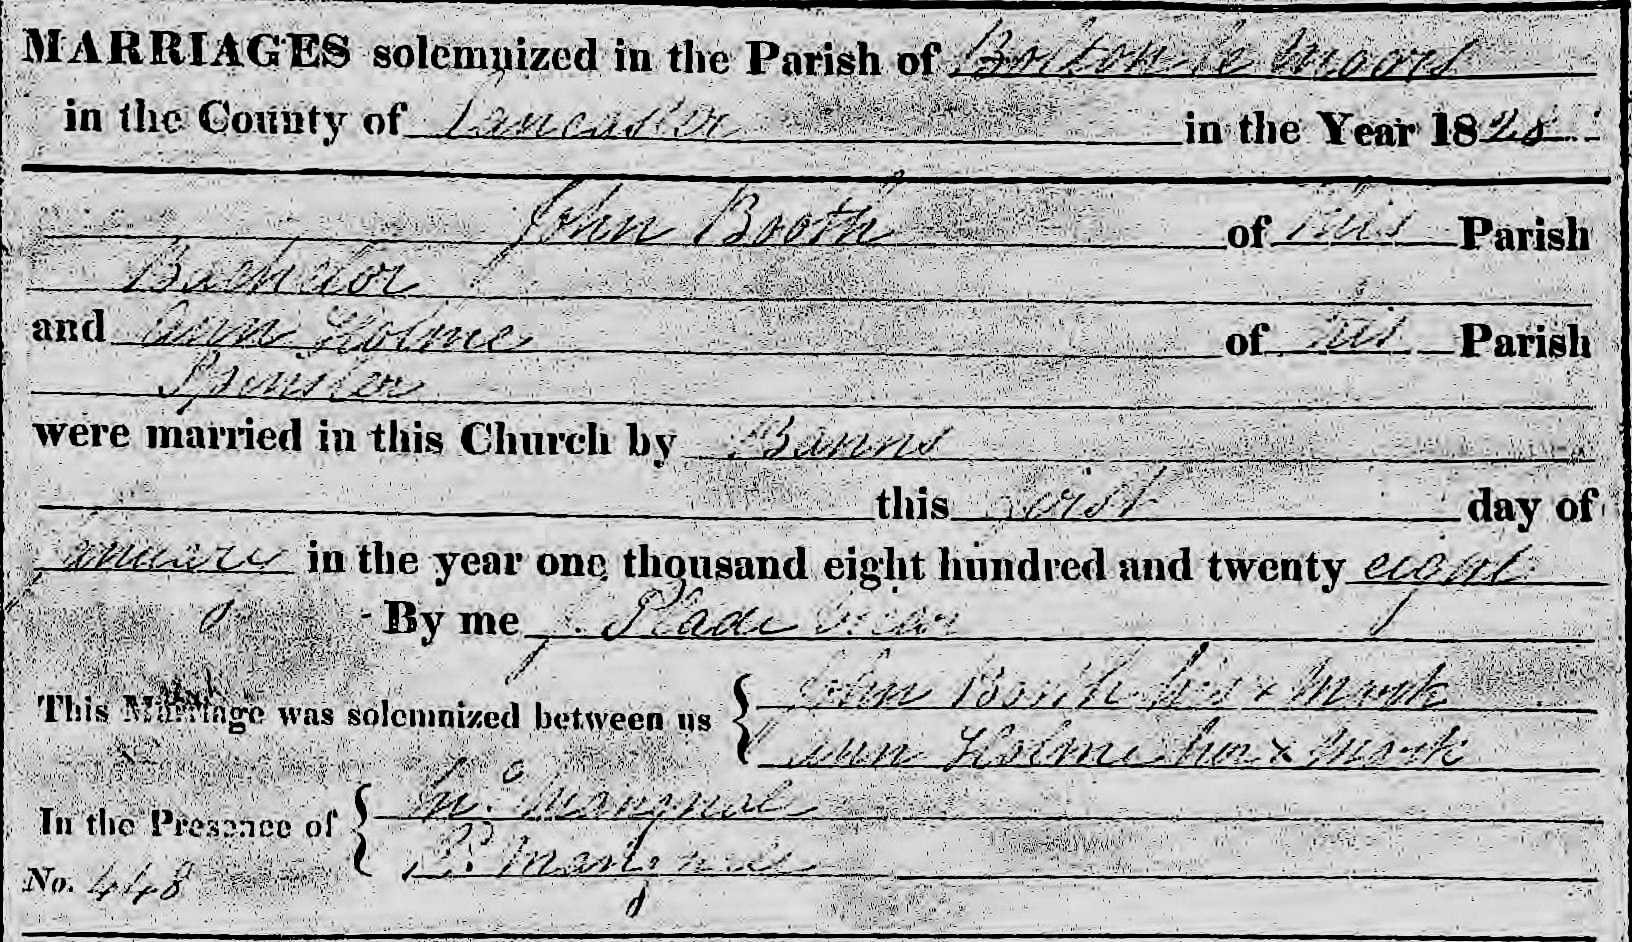 MARRIAGES solemnized in the Parish of Bolton le Moors
in the County of Lancaster in the Year 1828
John Booth of this Parish
Bachelor
and Ann Holme of this Parish
Spinster
were married in this Church by Banns
this first day of
January in the year one thousand eight hundred and twenty eight
By me J. Slade Vicar
This Marriage was solemnized between us { John Booth his x Mark
Ann Holme her x Mark
In the Presence of { Mangnall
P. Mangnall
No. 448